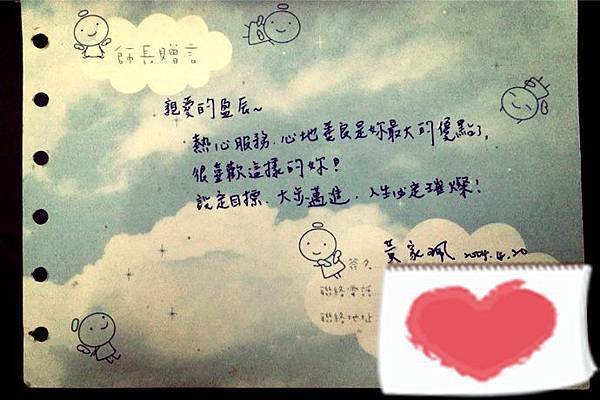 師長贈言
親愛的盈辰~
熱心服務、心地善良是妳最大的優點了,
很喜歡這樣的妳!
設定目標、大步邁進、人生必定璀燦!
黃家珮 2004.4.20
簽名
聯絡電話
聯絡地址